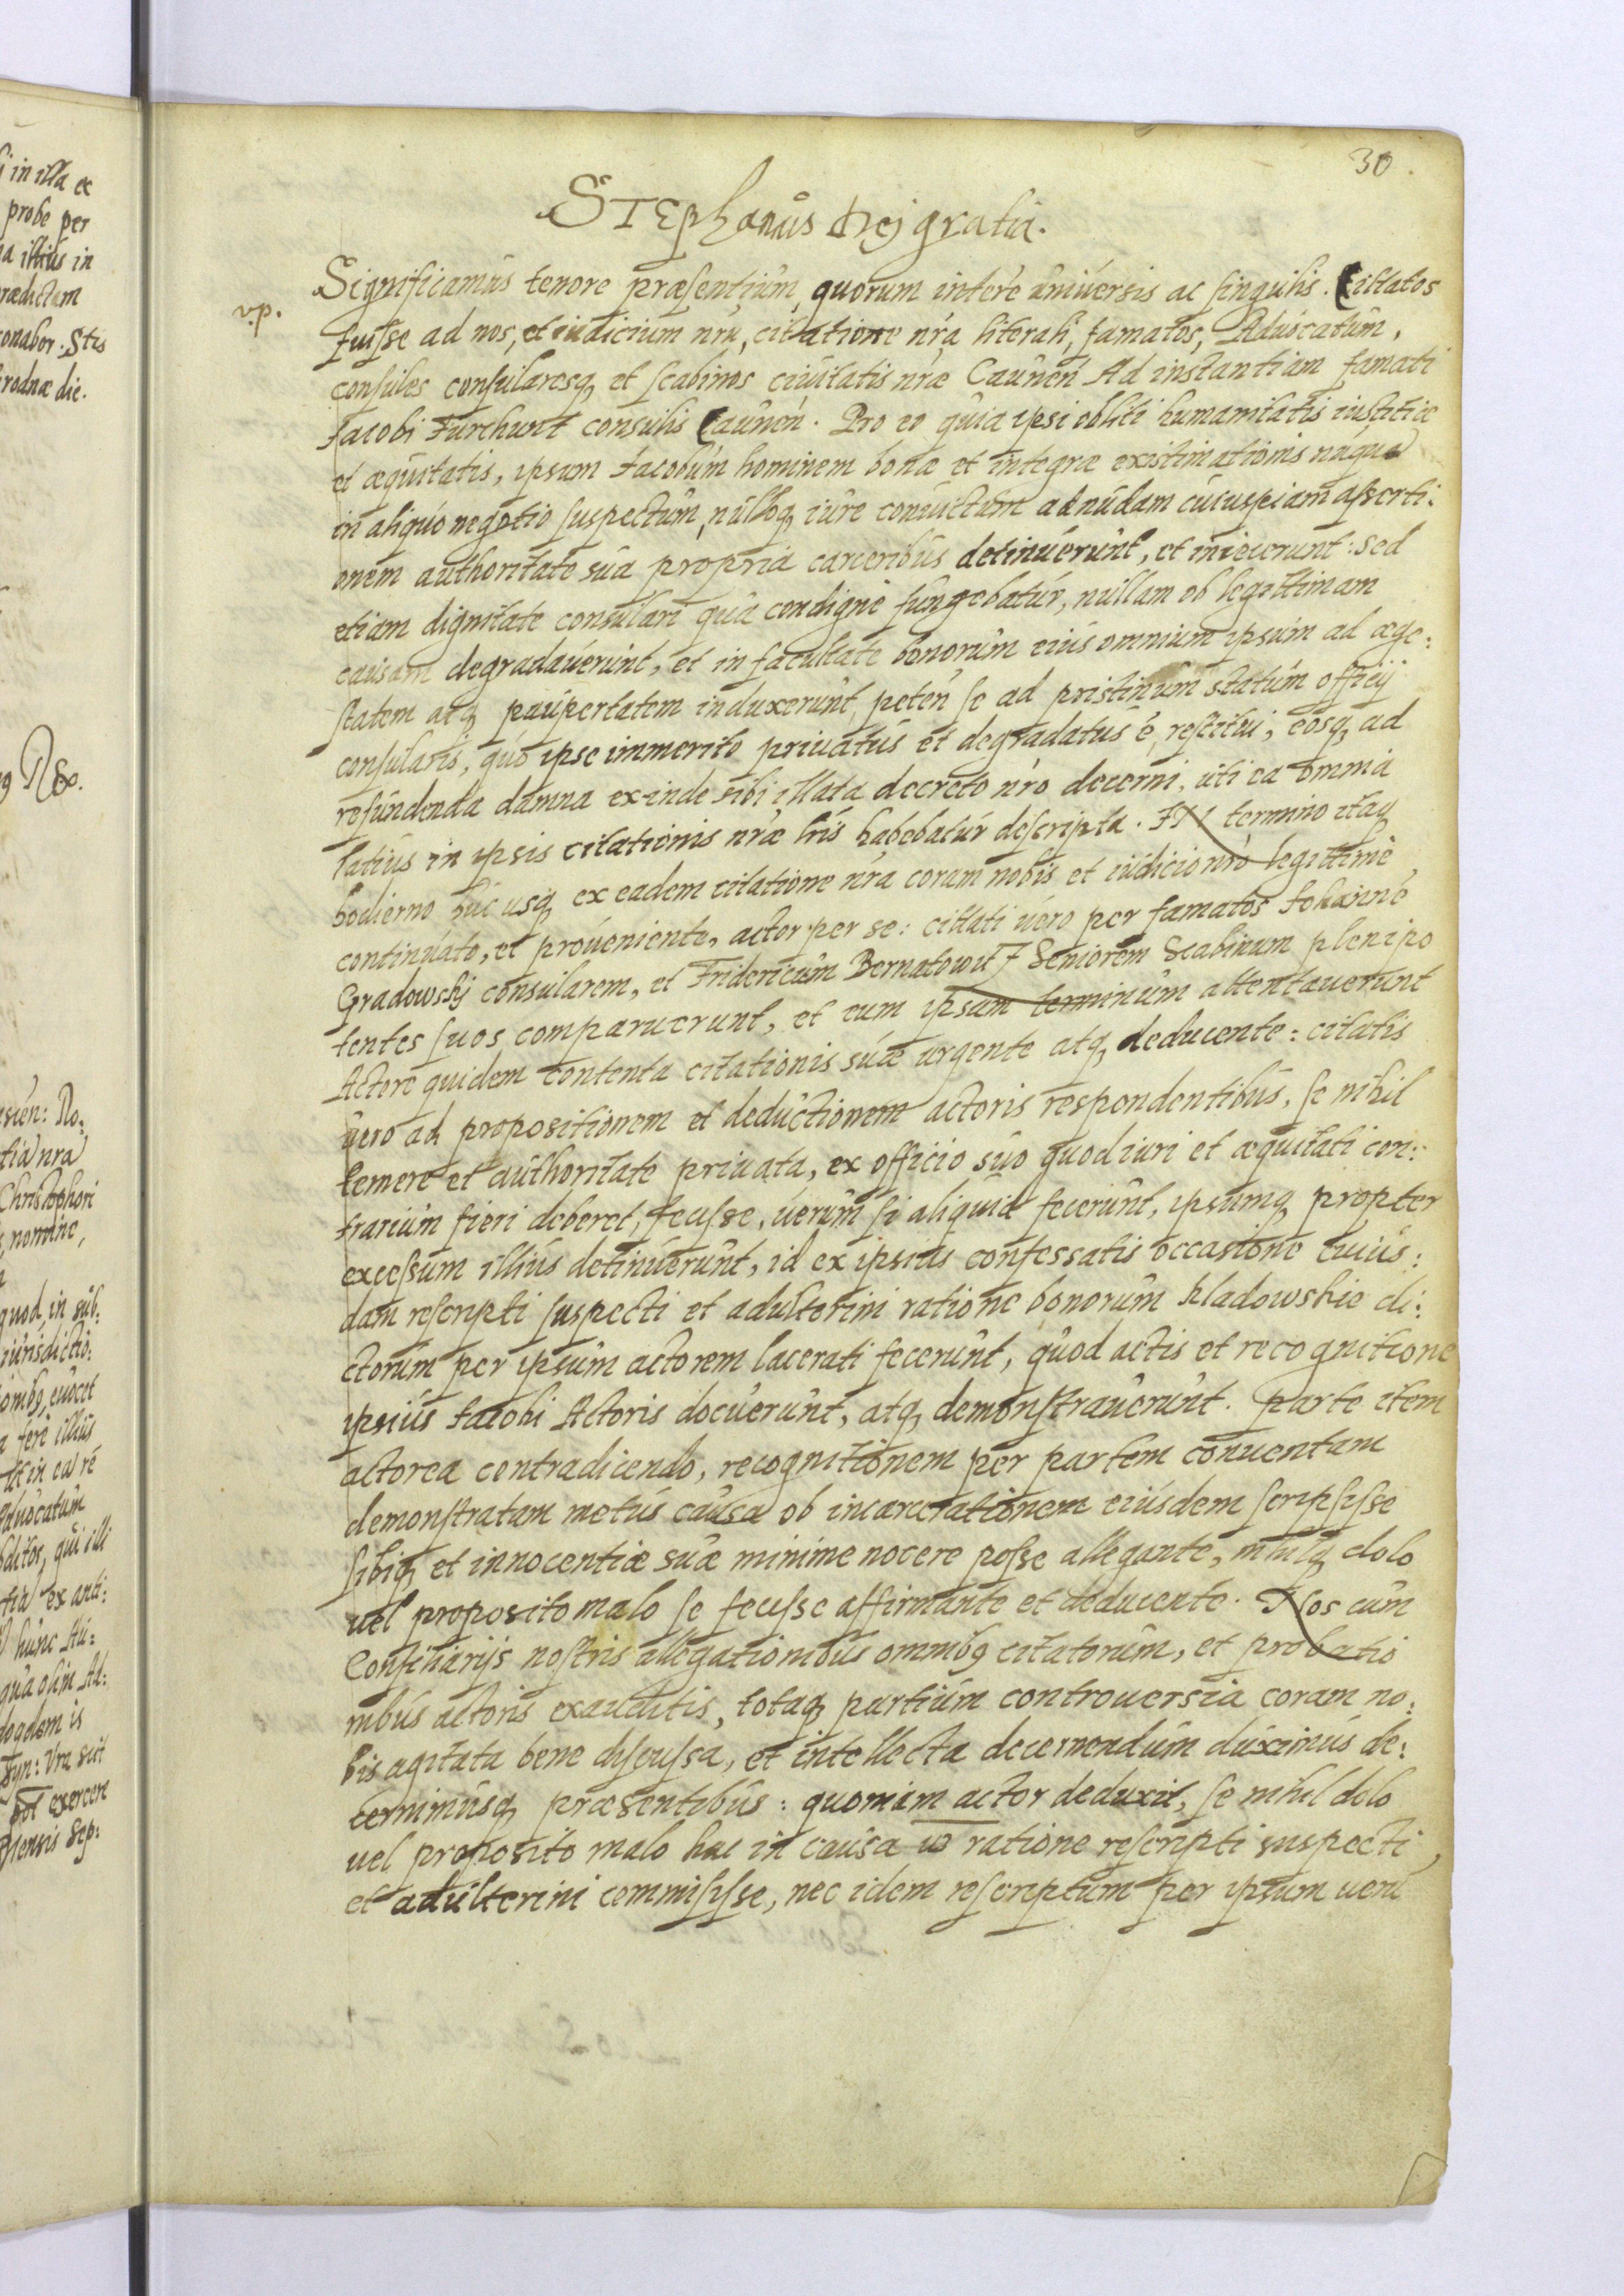 in illa ex
probe per
illius in
rædictam
onabor. Stis
rodnæ die.
Rex.
No:
tia nra
Christophori
nomine,
quod, in sub:
iurisdictio:
omibq, euocet
fere illius
ut in ea ré
Aduocatum
bditos, qui illi
tia ex anti:
hunc Au:
qua olim Ad:
degdem is
Vra scit
exercere
ensis Sep:
30.
STEphanus Dej gratia.
v.p.
Significamus tenore præsentium, quorum interé uniuersis ac singulis. Cittatos
fuisse ad nos, et iudicium nrú, citatione nrá literali, famatos, Aduocatum,
consules consularesq, et scabinos ciuitatis nræ Caunen Ad instantiam famati
Jacobi Furchunt consulis Caunen. Pro eo quia ipsi obliti humanitatis iustitiæ
et æquitatis, ipsum Jacobum hominem bonæ et integræ existimationis náqua
in aliquo negotio suspectum, nulloq, iure conuictum ad nudam cuiuspiam asserti:
onem authoritate sua propria carceribus detinuerunt, et iniecerunt: sed
etiam dignitate consulari qua condigne fungebatur, nullam ob legittimam
causam degradauerunt, et in facultate bonorum eius omnium ipsum ad æge:
statem atq, paupertatem induxerunt, peten se ad pristinum statum officij
consularis, quo ipse immerito priuatus et degradatus é, restitui, eosq, ad
refundenda damna ex inde sibi illata decreto nro decerni, uti ea omnia
latius in ipsis citationis nræ lris habebatur descripta. IN termino itaq
hodierno huc usq, ex eadem citatione nra coram nobis et iudicio nro legittime
continuato, et proueniente, actor per se: cittati uero per famatos Johanné
Gradowskj consularem, et Fridericum Bernatowit7 Seniorem Scabinum plenipo
tentes suos comparuerunt, et eum ipsum terminum attentauerunt
Actore quidem contenta citationis suæ urgente atq, deducente: citatis
uero ad propositionem et deductionem actoris respondentibus, se nihil
temere et authoritate priuata, ex officio suo quod iuri et æquitati con:
trarium fieri deberet, fecisse, uerum si aliquid fecerunt, ipsumq, propter
excessum illius detinuerunt, id ex ipsius confessatis occasione cuius:
dam rescripti suspecti et adulterini ratione bonorum Kladowskie di:
ctorum per ipsum actorem lacerati fecerunt, quod actis et recognitione
ipsius Jacobi Actoris docuerunt, atq, demonstrauerunt. Parte item
actorea contradicendo, recognitionem per partem conuentam
demonstratam metus causa ob incarcerationem eiusdem scripsisse
sibiq, et innocentiæ suæ minime nocere posse allegante, nihilq, dolo
uel proposito malo se fecisse affirmante et deducente. Nos cum
Consiliarijs nostris allegationibus omnibq citatorum, et probatio
nibus actoris exauditis, totaq, partium controuersia coram no:
bis agitata bene discussa, et intellecta decernendum duximus de:
cernimusq, præsentibus: quoniam actor deduxit, se nihil dolo
uel proposito malo hac in causa ratione rescripti suspecti,
et adulterini commisisse, nec idem rescriptum per ipsum ueni